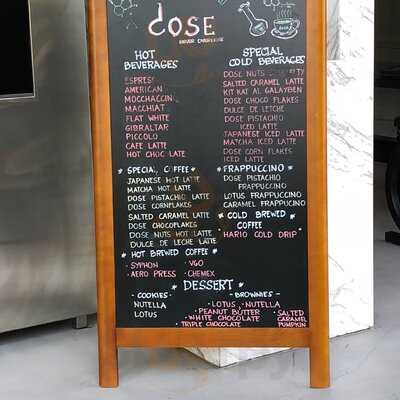 dose
HOT
BEVERAGES
ESPRES
AMERICAN
MOCCHACCIN
MACCHIAT
FLAT WHITE
GIBRALTAR
PICCOLO
CAFE LATTE
HOT CHOC LATE
SPECIAL
COLD BEVERAGES
DOSE NUTS
SALTED CARAMEL LATTE
KIT KAT AL GALAYBEN
DOSE CHOCO FLAKES
DULCE DE LETCHE
DOSE PISTACHIO
ICED LATTE
JAPANESE ICED LATTE
MATCHA ICED LATTE
DOSE CORN FLAKES
ICED LATTE
* SPECIAL C FFEE *
JAPANESE HOT LATTE
MATCHA HOT LATTE
DOSE PISTACHIO LATTE
DOSE CORNFLAKES
SALTED CARAMEL LATTE
DOSE CHOCOFLAKES
DOSE NUTS HOT LATTE
DULCE DE LECHE LATTE
* FRAPPUCCINO *
DOSE PISTACHIO
FRAPPUCCINO
LOTUS FRAPPUCCINO
CARAMEL FRAPPUCCINO
* COLD BREWED *
COFFEE
HARIO COLD DRIP
* HOT BREWED COFFEE *
· SYPHON · V60
· AERO PRESS · CHEMEX
* DESSERT *
- COOKIES -
NUTELLA
LOTUS
- BROWNIES -
· LOTUS · NUTELLA
· PEANUT BUTTER
· WHITE CHOCOLATE
· TRIPLE CHOCOLATE
· SALTED
CARAMEL
PUMPKIN